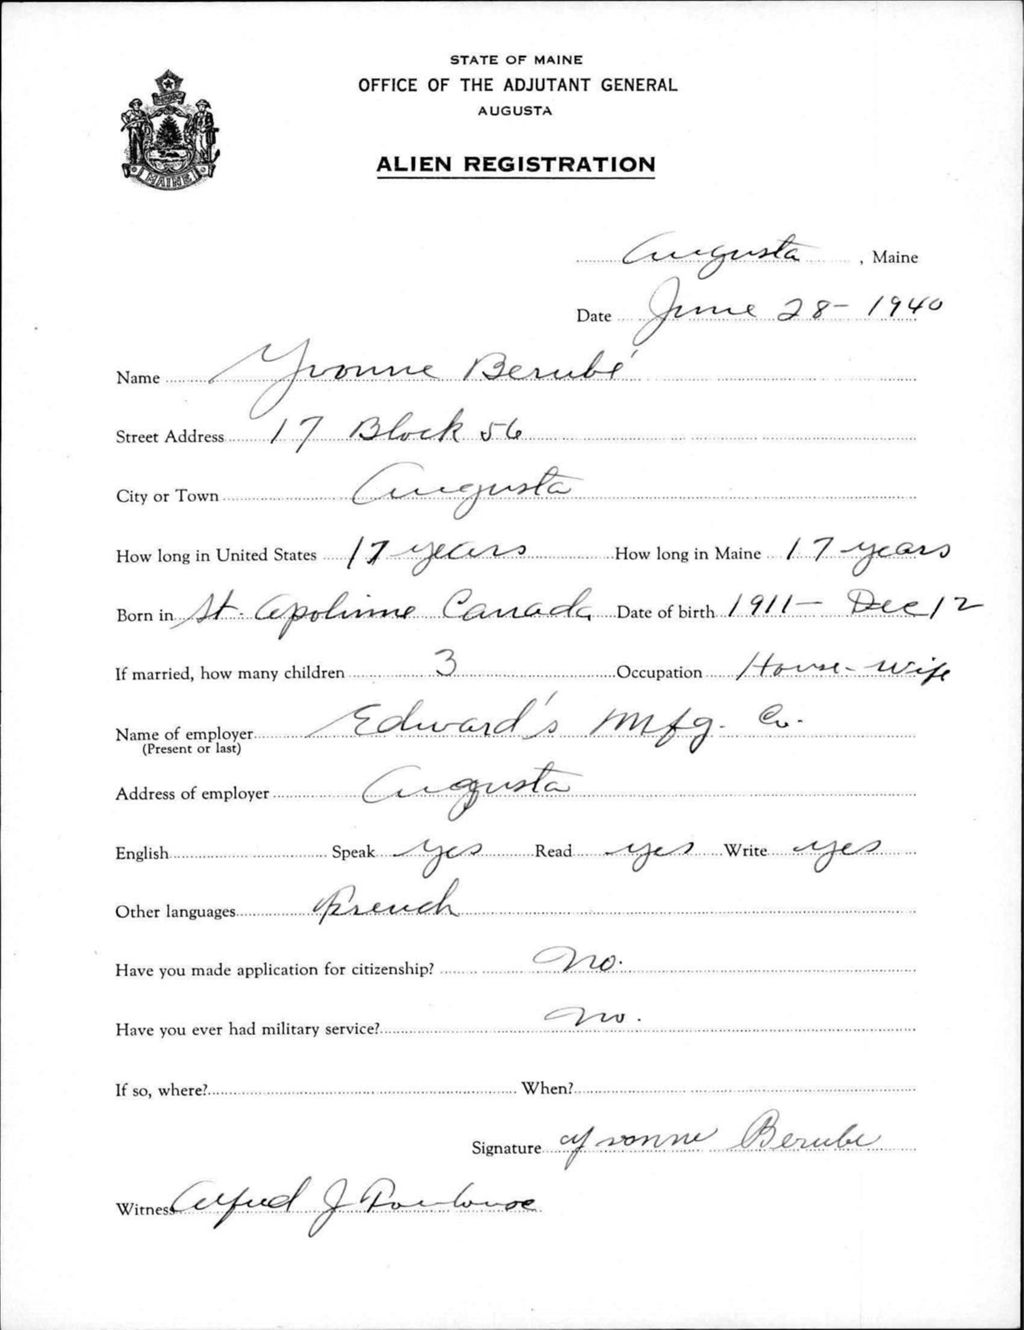 STATE OF MAINE
OFFICE OF THE ADJUTANT GENERAL
AUGUSTA
ALIEN REGISTRATION
MAINE
Augusta, Maine
Date June 28-1940
Name Yvonne Berubé
Street Address 17 Block 56
City or Town Augusta
How long in United States 17 years How long in Maine 17 years
Born in St. Apolinne Canada Date of birth 1911- Dec 12
If married, how many children 3 Occupation House-wife
Name of employer Edward's Mfg. Co.
(Present or last)
Address of employer Augusta
English Speak yes Read yes Write yes
Other languages French
Have you made application for citizenship? No.
Have you ever had military service? No.
If so, where? When?
Signature Yvonne Berube
Witness Alfred J